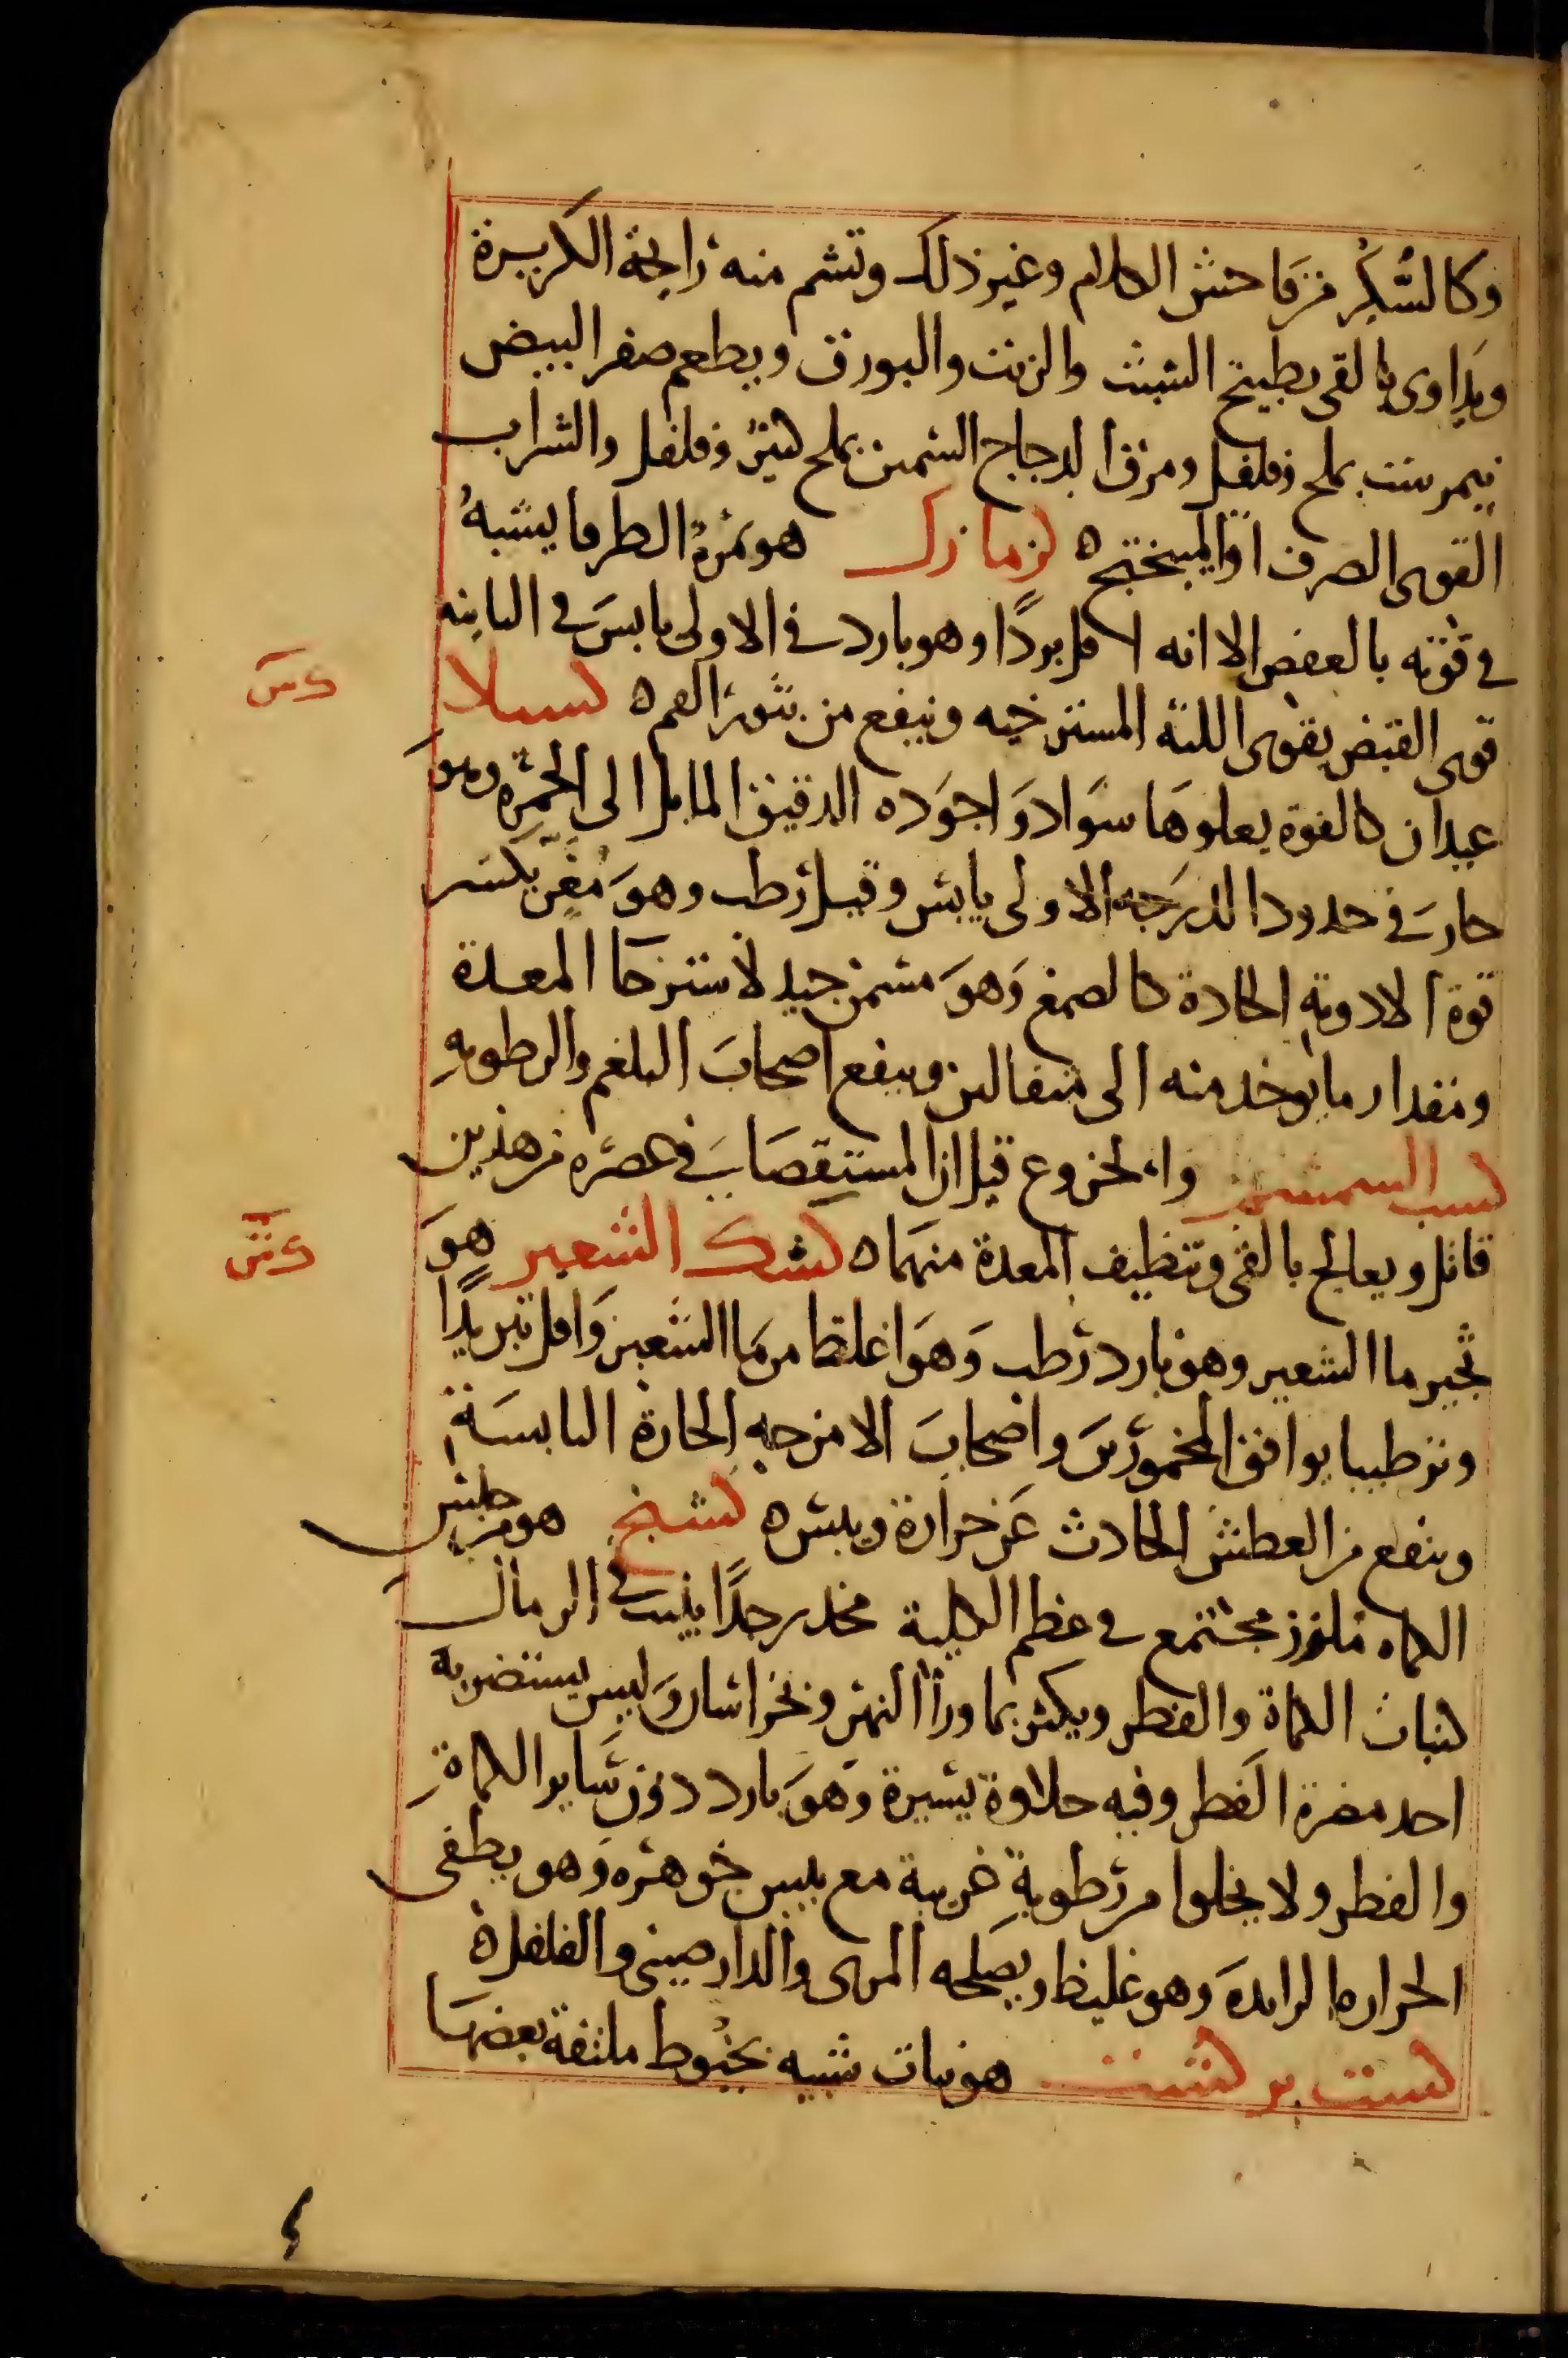 وكالسُّكْر من فاحش الكلام وغير ذلك وتشم منه رايحة الكزبرة
ويداوى بالقى بطبيخ الشبث والزيت والبورق ويطعم صفر البيض
نيمرشت بملح وفلفل ومرق الدجاج السمين بملح كثير وفلفل والشراب
القوى الصرف او الميبختج ه كزمازك هو ثمرة الطرفا يشبهُ
فى قوته بالعفص الا انه اقل بردًا وهو بارد فى الاولى يابس فى الثانيه
قوى القبض يقوى اللثه المسترخيه وينفع من بثور الفم ه كسيلا
كس
عيدان كالفوة يعلوها سواد واجوده الدقيق المايل الى الحمرة وهو
حار فى حدود الدرجه الاولى يابس وقيل رطب وهو مُغرٍّ يكسر
قوة الادوية الحادة كالصمغ وهو مسمن جيد لاسترخا المعدة
ومقدار ما يوخد منه الى مثقالين وينفع اصحاب البلغم والرطوبةِ
كسب السمسم والخروع قيل ان المستقصا فى عصره من هذين
قاتل ويعالج بالقى وتنظيف المعدة منهما ه كشك الشعير هو
كش
ثجير ما الشعير وهو بارد رطب وهو اغلظ من ما الشعير واقل تبريدًا
وترطيبا يوافق المخمورين واصحاب الامزجه الحارة اليابسة
وينفع من العطش الحادث عن حرارة ويبس ه كشنج هو من جنس
الكماه ملزز مجتمع فى عظم الكلية مخدر جدًا ينبت فى الرمال
كنبات الكماة والفطر ويكثر بما ورا النهر وبخراسان وليس يستضر به
احد مضرة الفطر وفيه حلاوة يسيرة وهو بارد دون ساير الكماةِ
والفطر ولا يخلوا من رطوبة غريبة مع يبس جوهره وهو يطفى
الحراره الزايده وهو غليظ ويصلحه المرى والدارصينى والفلفل ه
كشت بر كشت هو نبات شبيه بخيوط ملتفة بعضها